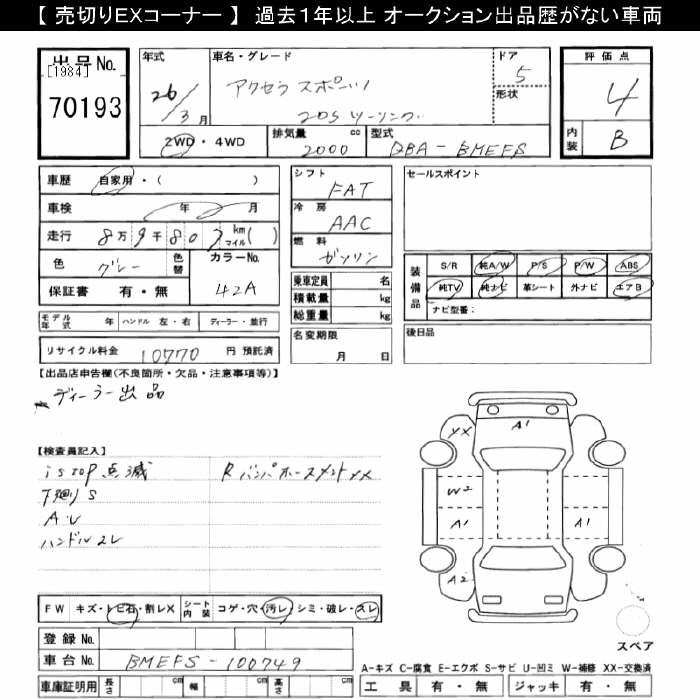 【 売切りEXコーナー 】 過去1年以上 オークション出品歴がない車両
出品No.
[1984]
70193
年式 26/3月
車名・グレード アクセラ スポーツ
20S ツーリング
ドア 5
形状
2WD・4WD
排気量 2000 cc
型式 DBA-BMEFS
評価点 4
内装 B
車歴 自家用・( )
車検 年 月
走行 8万9千80 km マイル( )
色 グレー 色替 カラーNo. 42A
保証書 有・無
モデル年式 年 ハンドル 左・右 ディーラー・並行
リサイクル料金 10770 円 預託済
シフト FAT
冷房 AAC
燃料 ガソリン
乗車定員 名
積載量 kg
総重量 kg
名変期限
月 日
セールスポイント
装備品
S/R 純A/W P/S P/W ABS
純TV 純ナビ 革シート 外ナビ エアB
ナビ型番:
後日品
【出品店申告欄(不良箇所・欠品・注意事項等)】
ディーラー出品
【検査員記入】
istop 点滅 R バンパホースメントXX
下廻りS
A・U
ハンドルスレ
YX A1
W2
A1 A1
A2
スペア
FW キズ・トビ石・割レX シート内装 コゲ・穴・汚レ・シミ・破レ・スレ
登録No.
車台No. BMEFS-100749
車庫証明用 長さ cm 幅 cm 高さ cm
A-キズ C-腐食 E-エクボ S-サビ U-凹ミ W-補修 XX-交換済
工具 有・無 ジャッキ 有・無